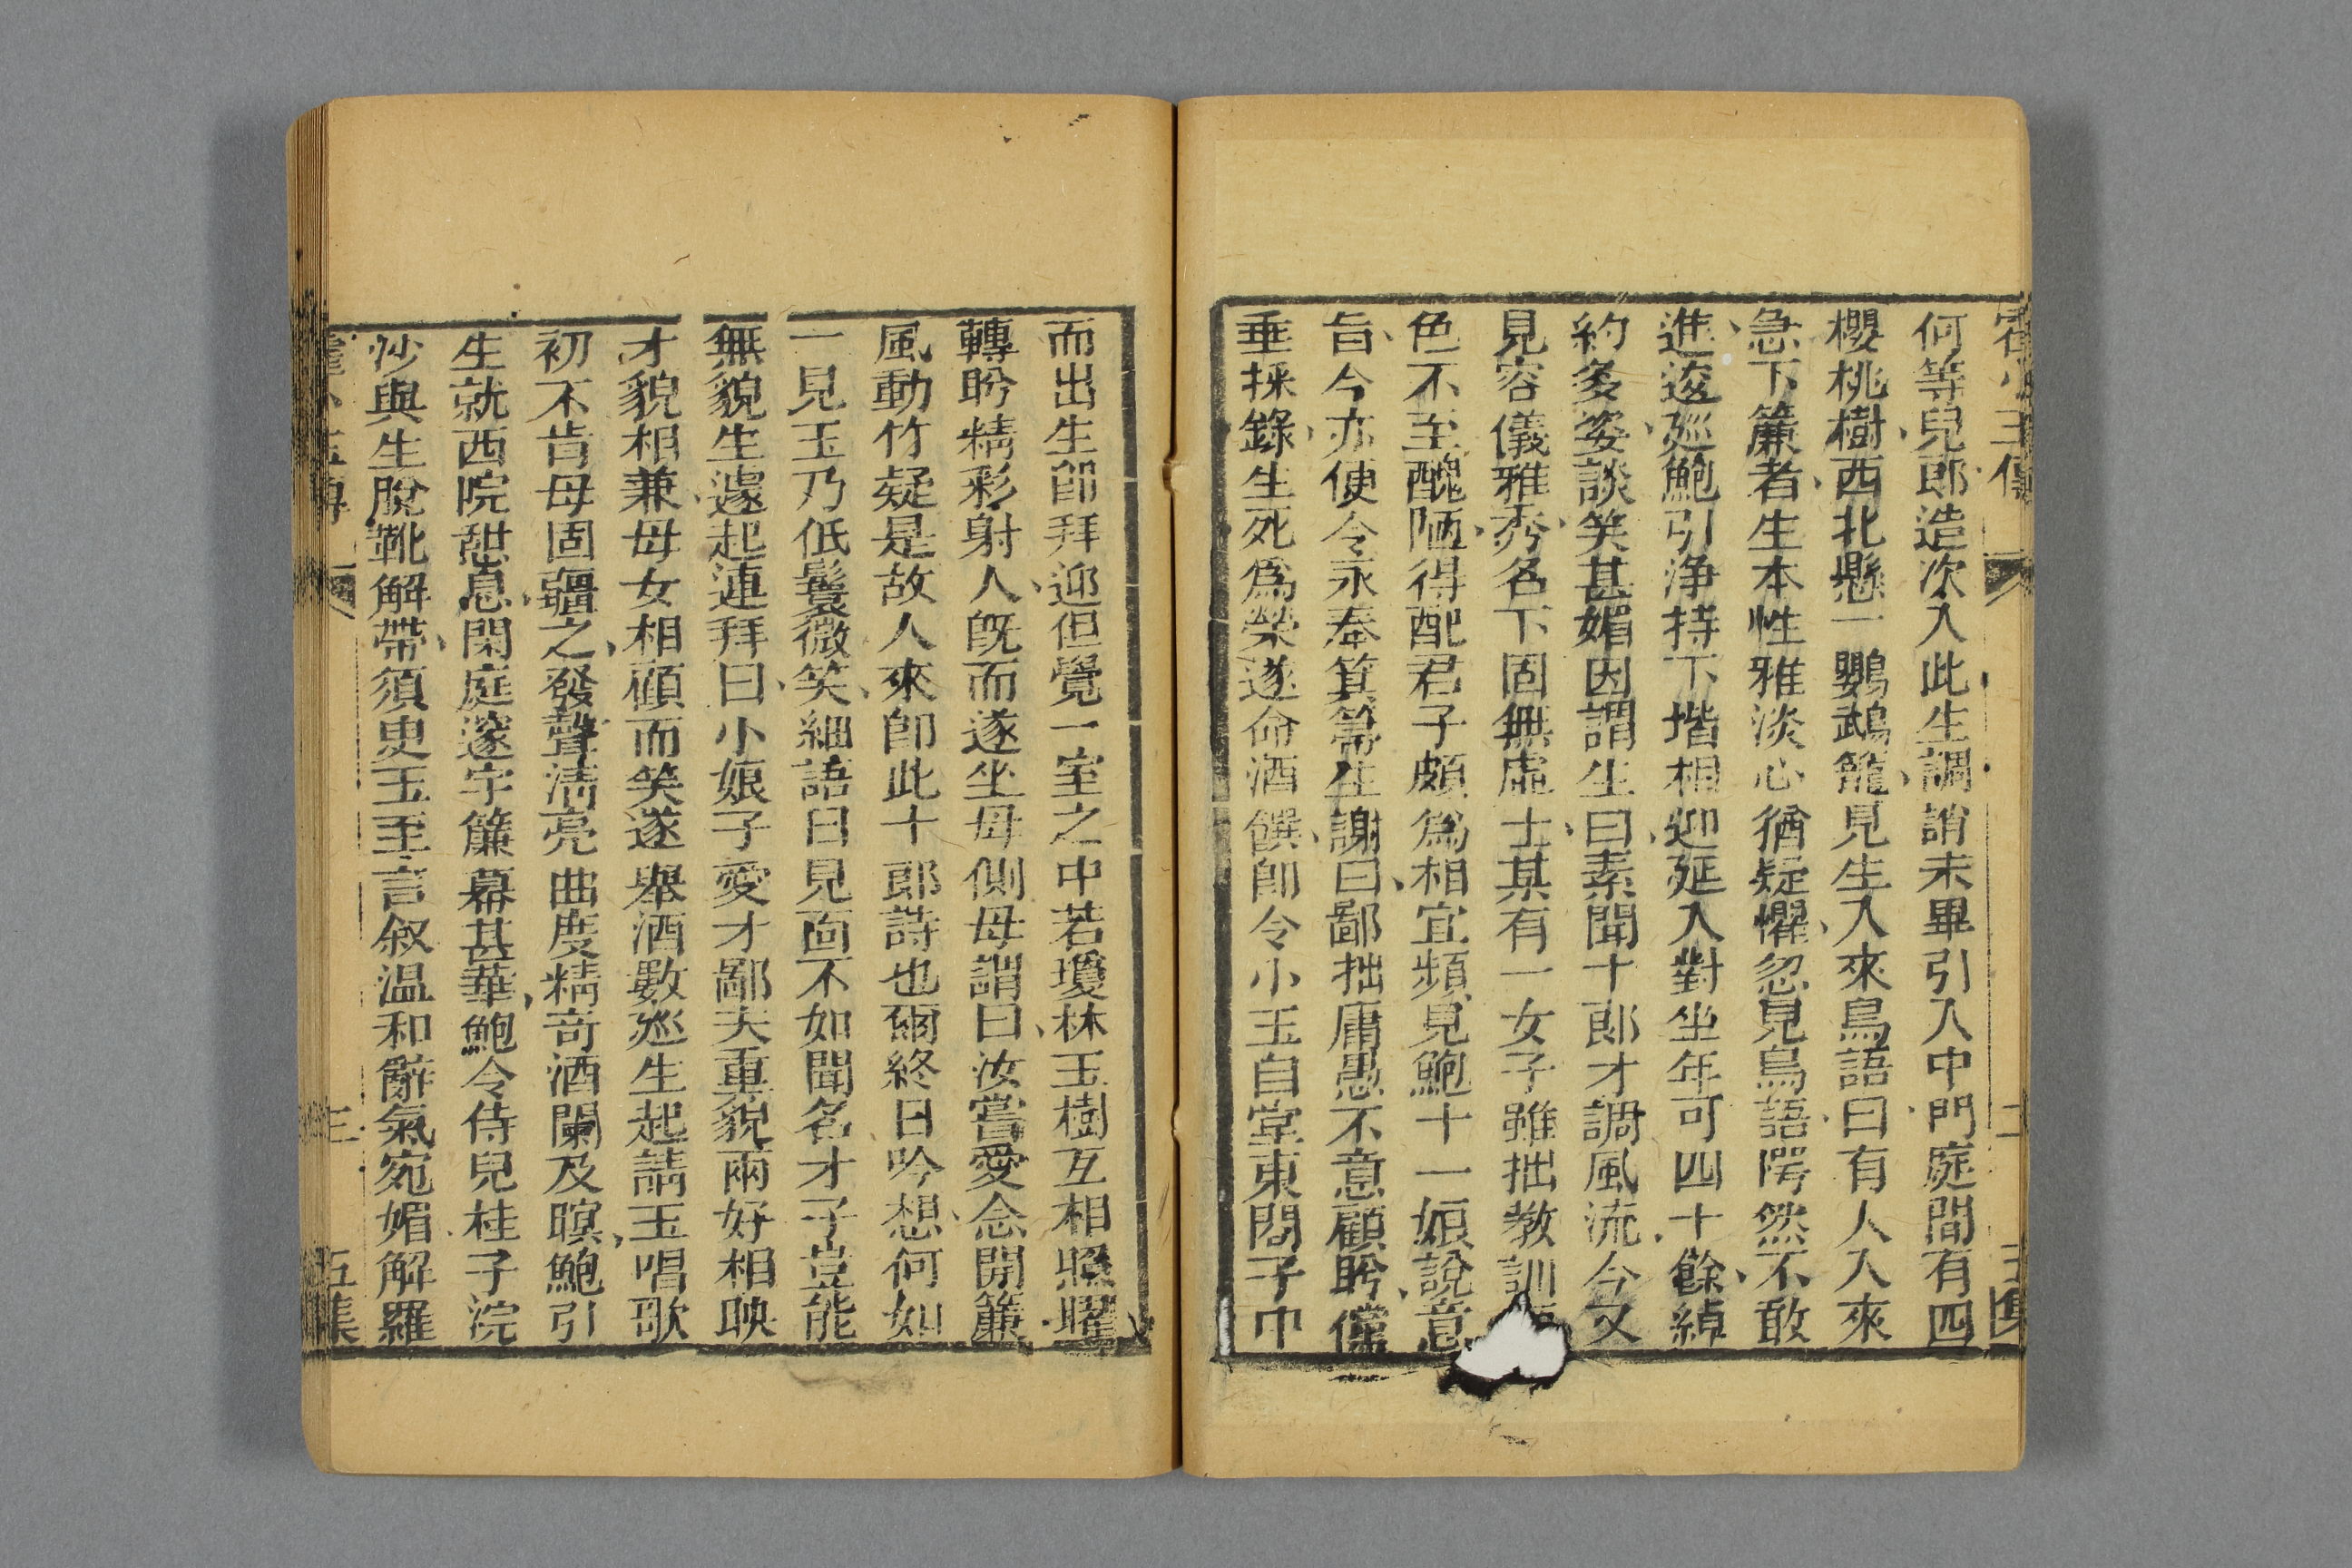 霍小玉傳 二 五集
何等兒郎造次入此生調誚未畢引入中門庭間有四
櫻桃樹西北懸一鸚鵡籠見生入來鳥語曰有人入來
急下簾者生本性雅淡心猶疑懼忽見鳥語愕然不敢
進逡廵鮑引淨持下堦相迎延入對坐年可四十餘綽
約多姿談笑甚媚因謂生曰素聞十郎才調風流今又
見容儀雅秀名下固無虛士某有一女子雖拙教訓
色不至醜陋得配君子頗爲相宜頻見鮑十一娘說意
旨今亦便令永奉箕箒生謝曰鄙拙庸愚不意顧盻儻
垂採錄生死爲榮遂命酒饌卽令小玉自堂東閤子中
而出生卽拜迎但覺一室之中若瓊林玉樹互相照曜
轉盻精彩射人旣而遂坐母側母謂曰汝嘗愛念開簾
風動竹疑是故人來卽此十郎詩也爾終日吟想何如
一見玉乃低鬟微笑細語曰見面不如聞名才子豈能
無貌生遽起連拜曰小娘子愛才鄙夫重貌兩好相映
才貌相兼母女相顧而笑遂舉酒數廵生起請玉唱歌
初不肯母固彊之發聲淸亮曲度精奇酒闌及暝鮑引
生就西院憩息閑庭邃宇簾幕甚華鮑令侍兒桂子浣
沙與生脫靴解帶須臾玉至言叙温和辭氣宛媚解羅
霍小玉傳 三 五集